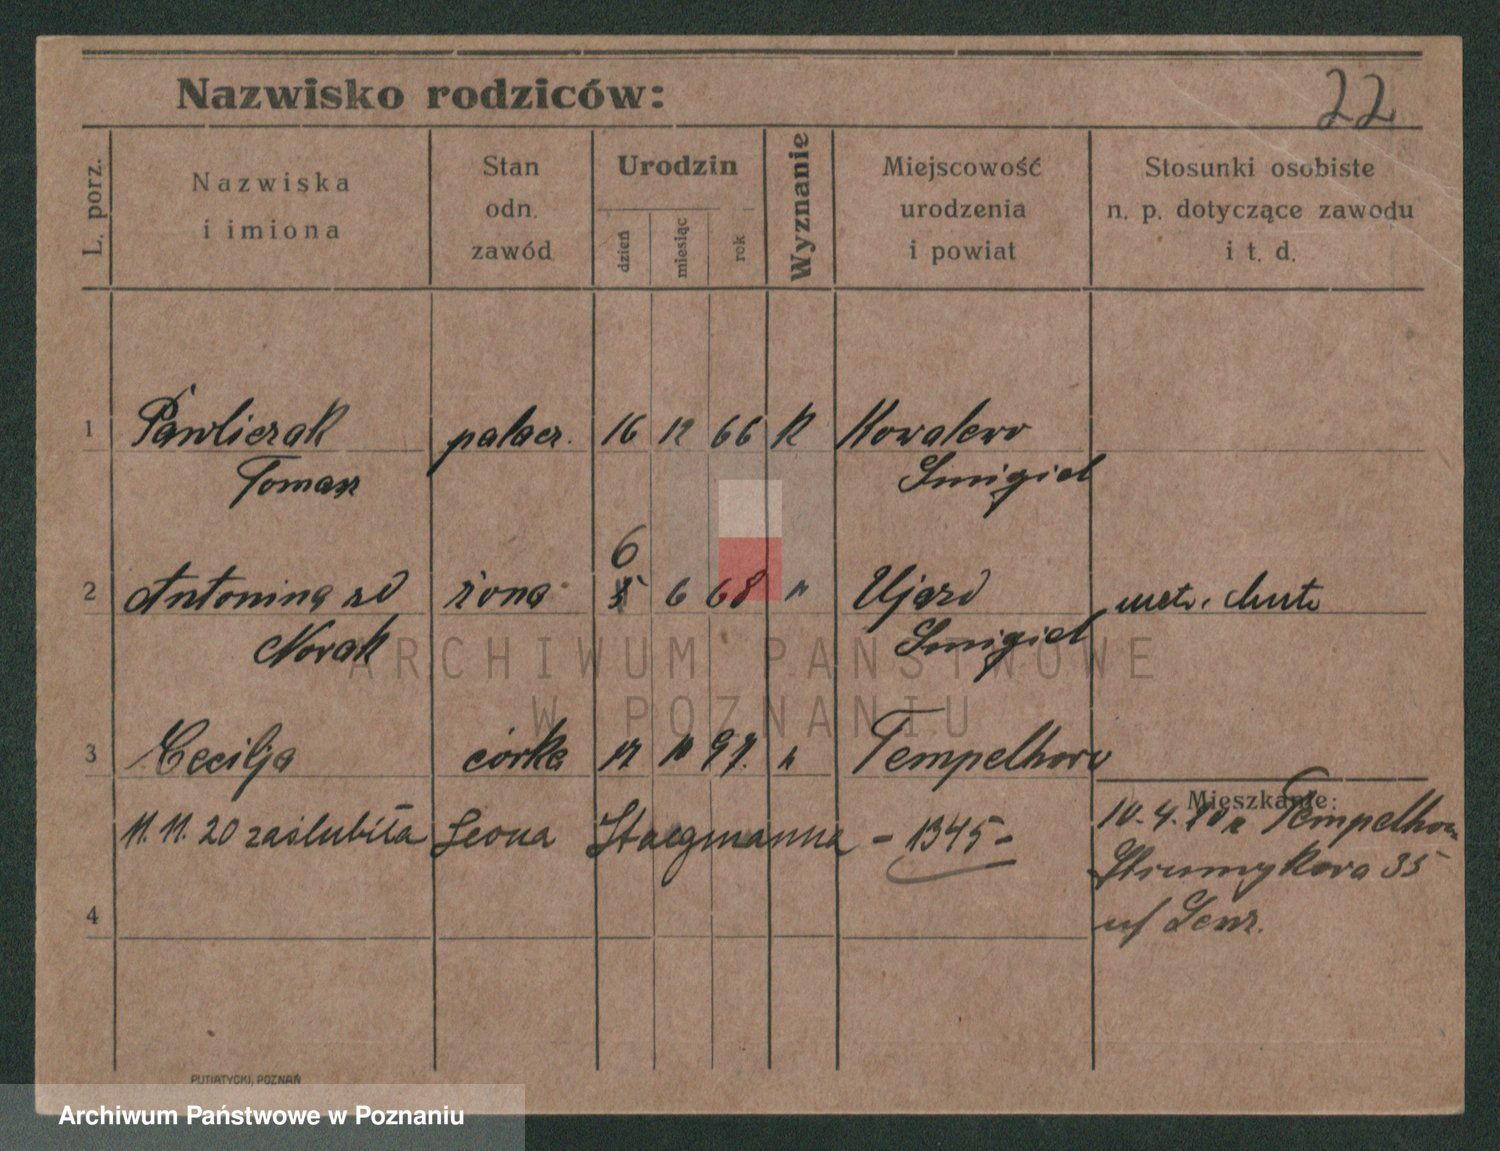 Nazwisko rodziców:
22
L. porz.
Nazwiska
i imiona
Stan
odn.
zawód
Urodzin
dzień
miesiąc
rok
Wyznanie
Miejscowość
urodzenia
i powiat
Stosunki osobiste
n. p. dotyczące zawodu
i t. d.
1 Pawliczak palacz. 16 12 66 k Kowalewo
Tomasz Śmigiel
6
2 Antonina zd żona 5 6 68 " Ujazd metr. chrztu
Nowak Śmigiel
3 Cecilja córka 10 97. " Tempelhow
Mieszkanie:
11. 11. 20 zaślubiła Leona Staegmanna - 1345 - 10. 4. z Tempelhow
Strumykowa 35
4 Lenz.
PUTIATYCKI, POZNAŃ
ARCHIWUM PAŃSTWOWE
W POZNANIU
Archiwum Państwowe w Poznaniu